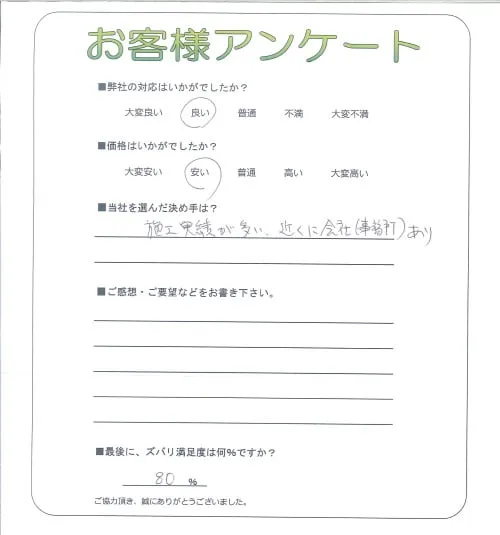 お客様アンケート
■弊社の対応はいかがでしたか？
大変良い 良い 普通 不満 大変不満
■価格はいかがでしたか？
大変安い 安い 普通 高い 大変高い
■当社を選んだ決め手は？
施工実績が多い、近くに会社(事務所)あり
■ご感想・ご要望などをお書き下さい。
■最後に、ズバリ満足度は何%ですか？
80 %
ご協力頂き、誠にありがとうございました。